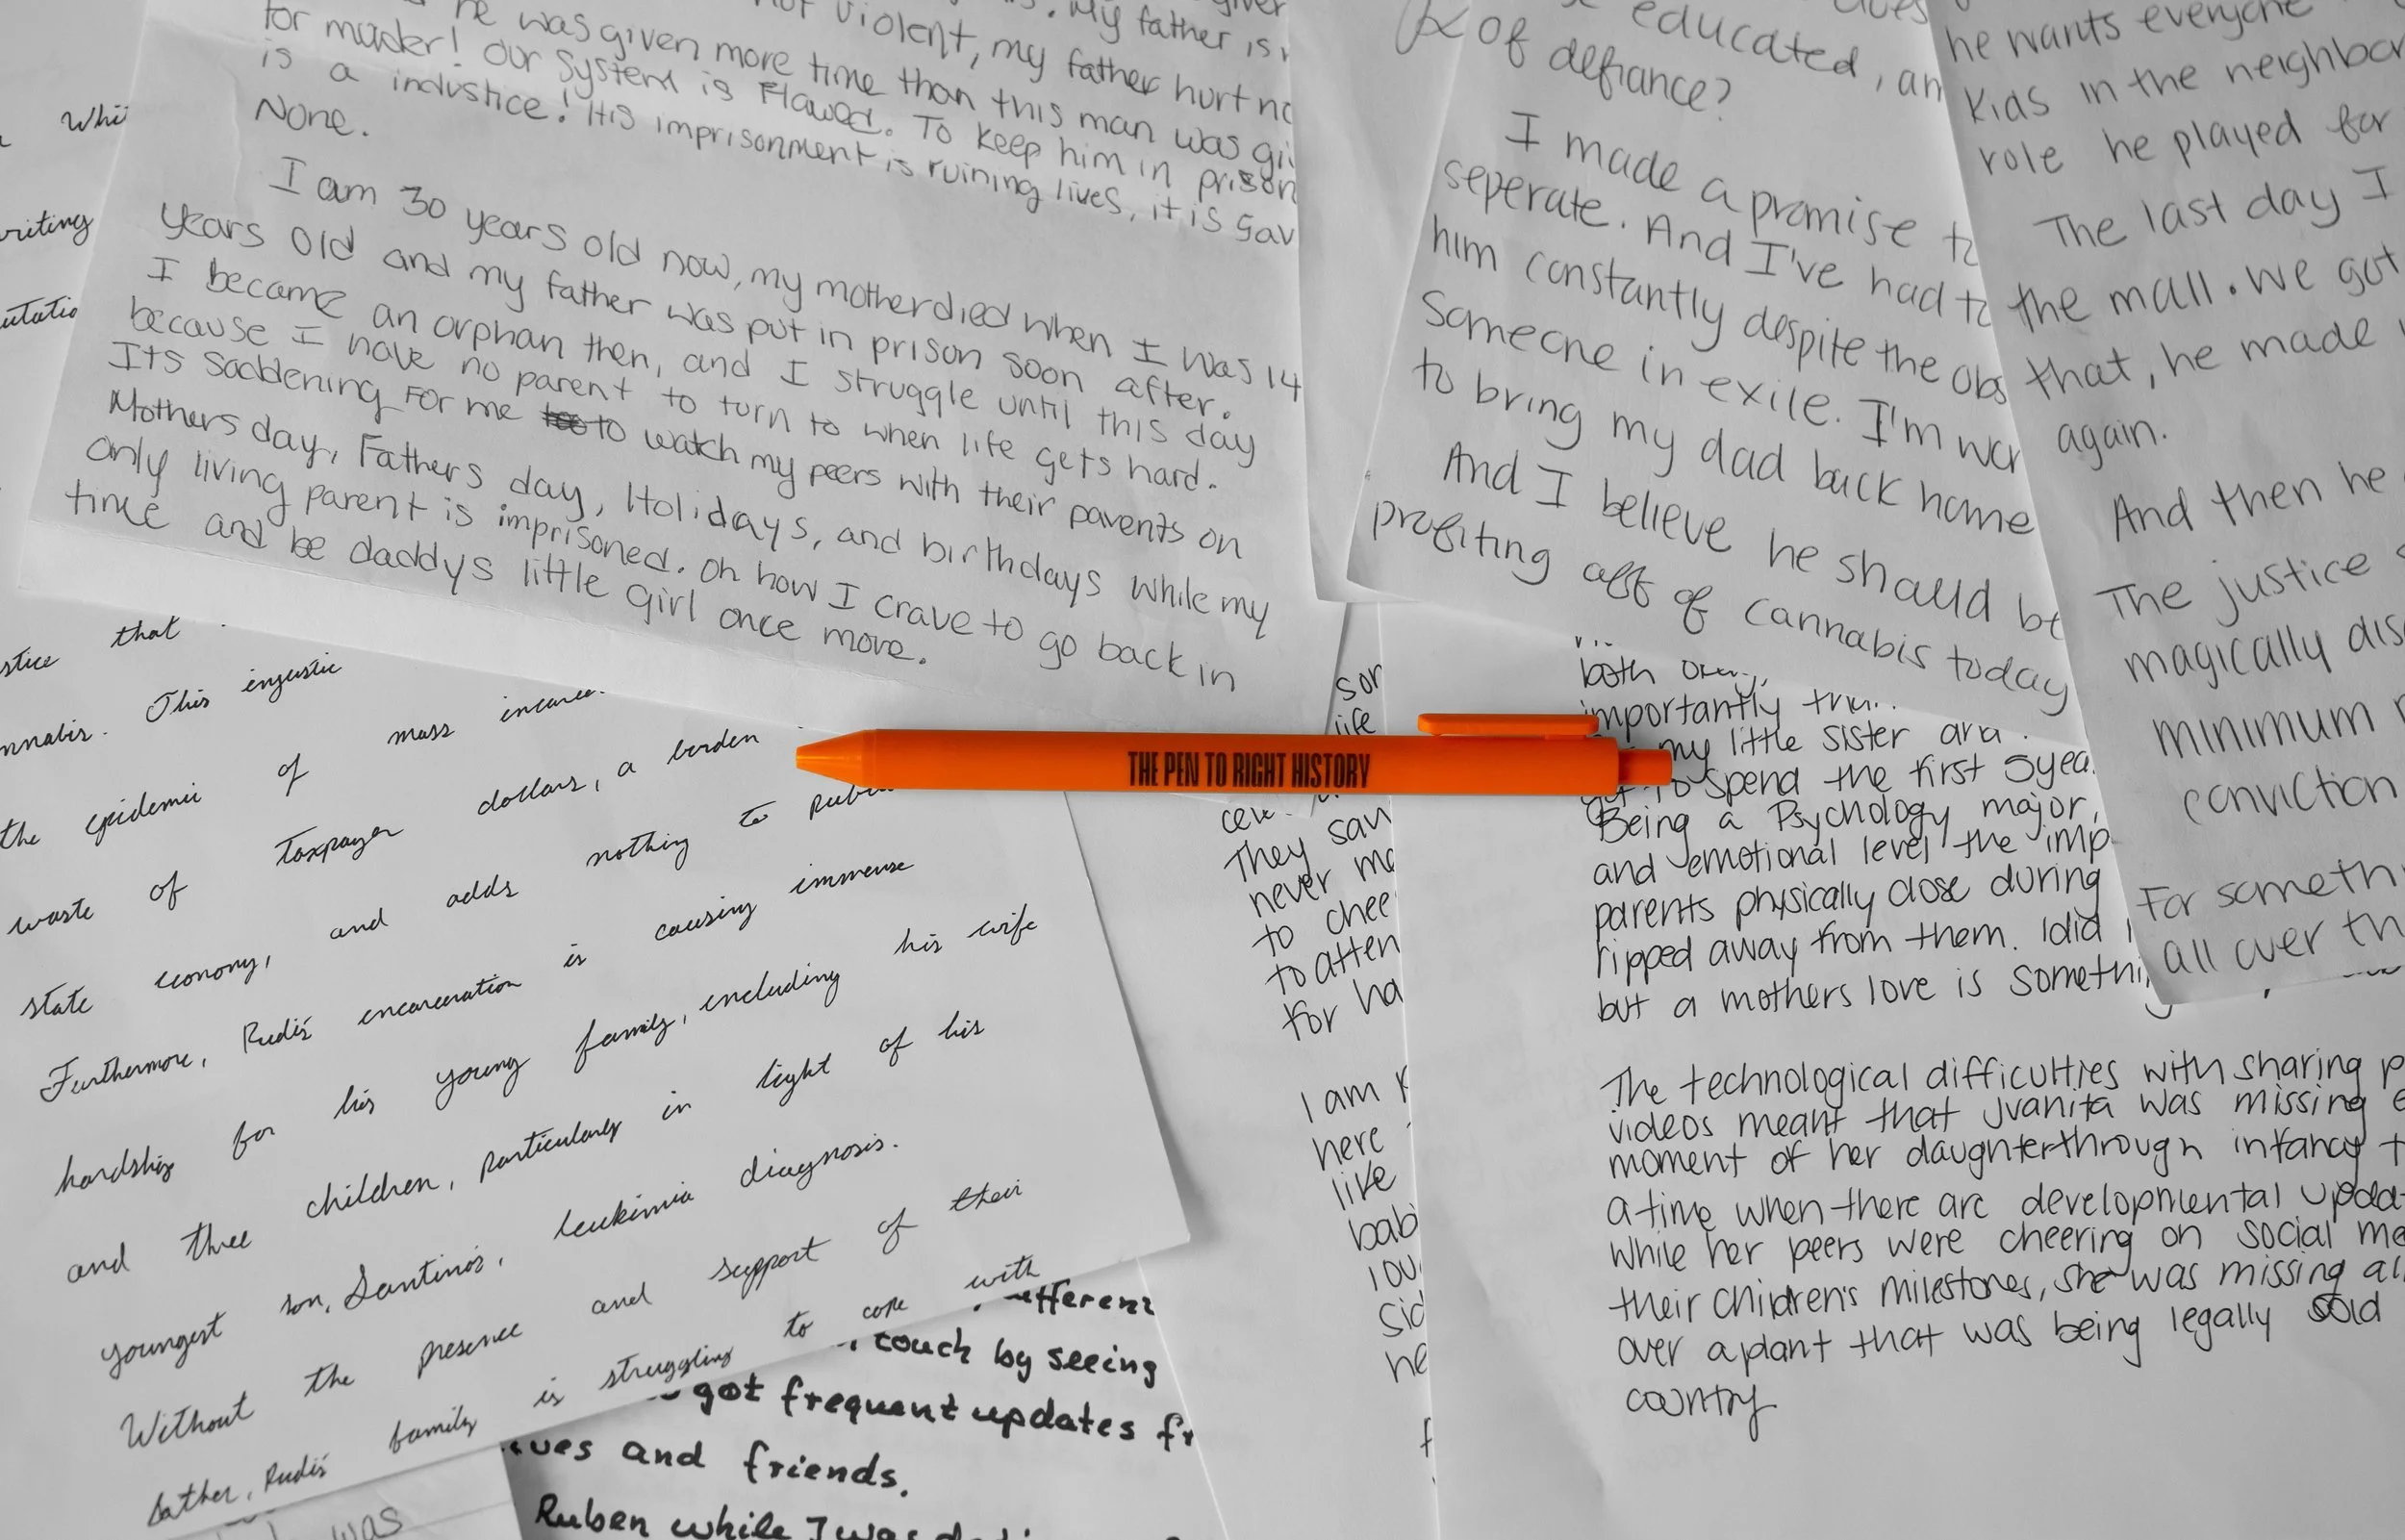 he was given more time than this man was gi
not violent, my father hurt no
. My father is
for murder! Our System is Flawed. To keep him in prison
is a industice! His imprisonment is ruining lives, it is Sav
None.
I am 30 years old now, my mother died when I was 14
years old and my father was put in prison soon after.
I became an orphan then, and I struggle until this day
because I have no parent to turn to when life gets hard.
Its saddening for me to watch my peers with their parents on
Mothers day, Fathers day, Holidays, and birthdays while my
only living parent is imprisoned. Oh how I crave to go back in
time and be daddys little girl once more.
educated, an
of defiance?
I made a promise to
seperate. And I've had to
him constantly despite the obs
Someone in exile. I'm wor
to bring my dad back home
And I believe he should be
profiting off of cannabis today
he wants everyone
kids in the neighbor
role he played for
The last day I
the mall. We got
that, he made
again.
And then he
The justice s
magically dis
minimum
conviction
For someth
all over th
Whi
riting
utatio
stice that
nnabis. This injustic
the epidemic of mass incarce
waste of taxpayer dollars, a borden
state economy, and adds nothing to public
Furthermore, Rudi's incarceration is causing immense
hardship for his young family, including his wife
and three children, particularly in light of his
youngest son, Santino's, leukimia diagnosis.
Without the presence and support of their
father, Rudi's family is struggling to cope with
THE PEN TO RIGHT HISTORY
son
life
They saw
never
to chee
to atten
for ha
I am
here
like
babi
lou
sid
he
both
importantly
my little sister and
to spend the first 5 yea
Being a Psychology major,
and emotional level the imp
parents physically close during
ripped away from them. I did
but a mothers love is somethi
The technological difficulties with sharing p
videos meant that Juanita was missing e
moment of her daughter through infancy t
a time when there are developmental upda
While her peers were cheering on social me
their children's milestones, she was missing al
over a plant that was being legally sold
country
ifferent
touch by seeing
got frequent updates fr
ives and friends.
Ruben while I was
was